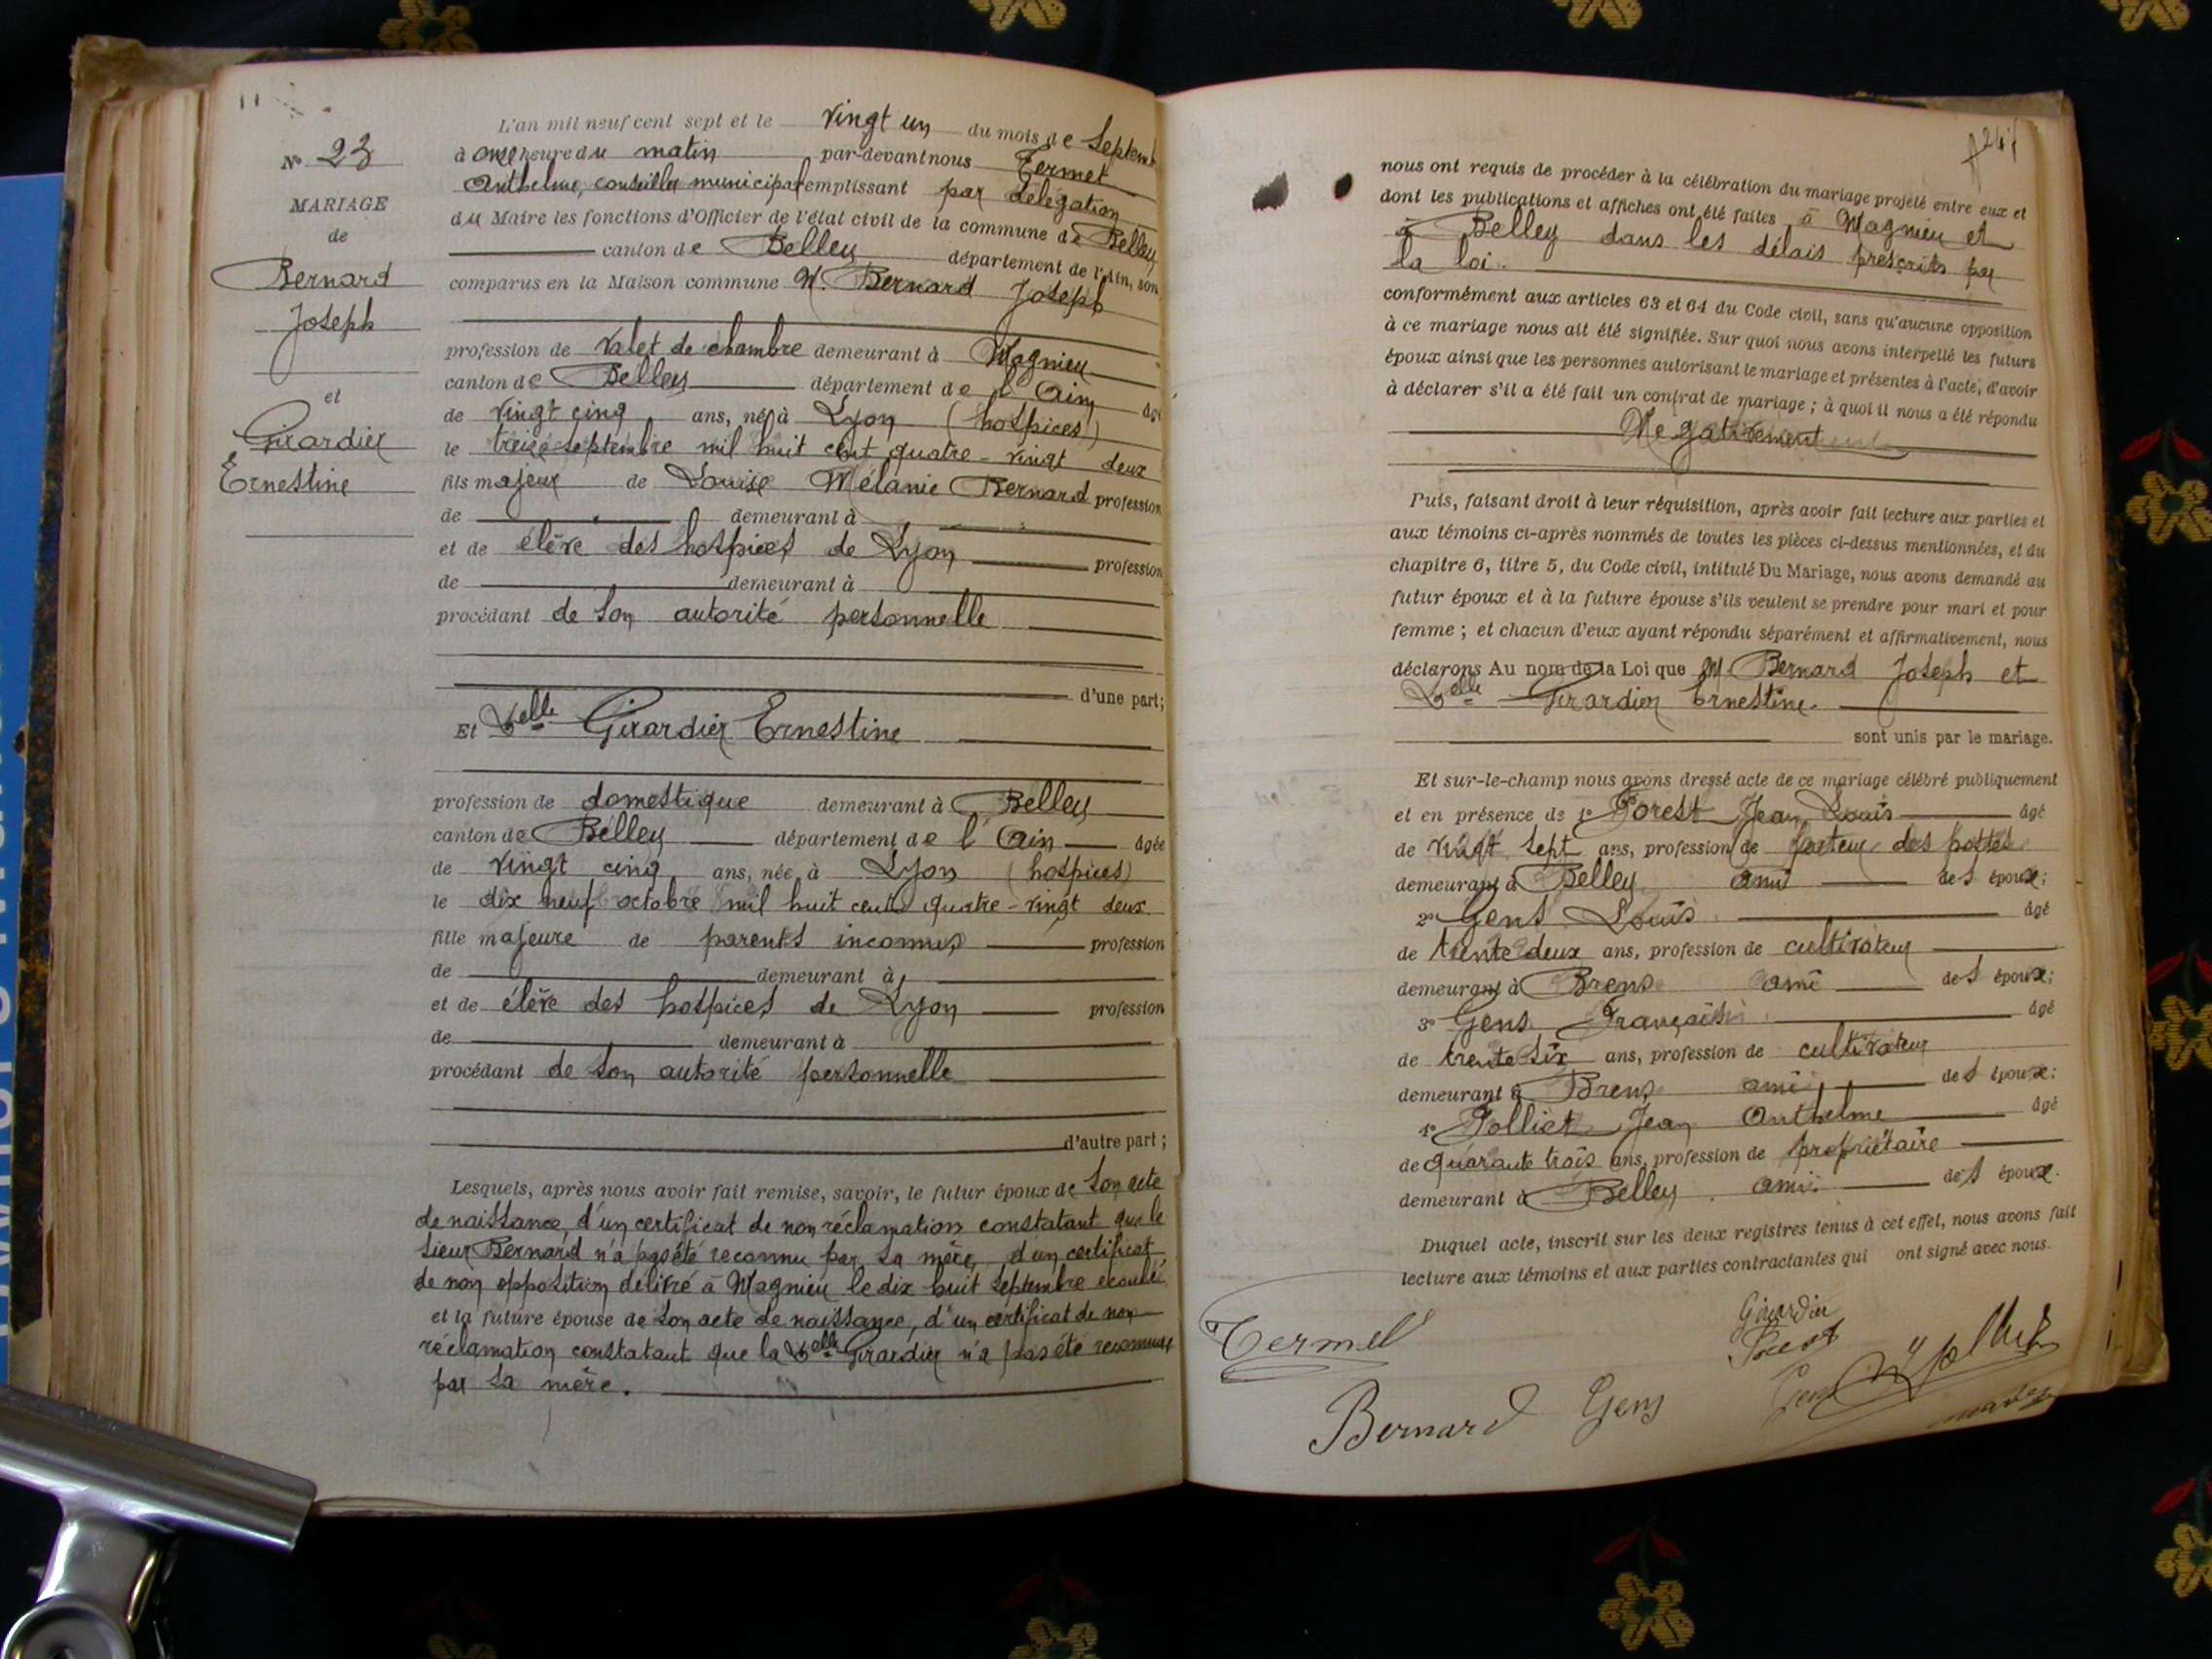 N° 23
MARIAGE
de
Bernard
Joseph
et
Girardier
Ernestine
L'an mil neuf cent sept et le vingt un du mois de Septemb
à onze heure du matin par-devant nous Termet
Anthelme, conseiller municipal remplissant par délégation
du Maire les fonctions d'Officier de l'état civil de la commune de Belley
canton de Belley département de l'Ain, son
comparus en la Maison commune M. Bernard Joseph
profession de valet de chambre demeurant à Magnieu
canton de Belley département de l'Ain âgé
de vingt cinq ans, né à Lyon (hospices)
le treize septembre mil huit cent quatre-vingt deux
fils majeur de Louise Mélanie Bernard profession
de demeurant à
et de élève des hospices de Lyon profession
de demeurant à
procédant de son autorité personnelle
d'une part;
Et Delle Girardier Ernestine
profession de domestique demeurant à Belley
canton de Belley département de l'Ain âgée
de vingt cinq ans, née à Lyon (hospices)
le dix neuf octobre mil huit cent quatre-vingt deux
fille majeure de parents inconnus profession
de demeurant à
et de élève des hospices de Lyon profession
de demeurant à
procédant de son autorité personnelle
d'autre part;
Lesquels, après nous avoir fait remise, savoir, le futur époux de son acte
de naissance, d'un certificat de non réclamation constatant que le
sieur Bernard n'a pas été reconnu par sa mère, d'un certificat
de non opposition délivré à Magnieu le dix huit septembre écoulé
et la future épouse de son acte de naissance, d'un certificat de non
réclamation constatant que la Delle Girardier n'a pas été reconnue
par sa mère.
nous ont requis de procéder à la célébration du mariage projeté entre eux et
dont les publications et affiches ont été faites à Magnieu et
à Belley dans les délais prescrits par
la loi.
conformément aux articles 63 et 64 du Code civil, sans qu'aucune opposition
à ce mariage nous ait été signifiée. Sur quoi nous avons interpellé les futurs
époux ainsi que les personnes autorisant le mariage et présentes à l'acte, d'avoir
à déclarer s'il a été fait un contrat de mariage; à quoi il nous a été répondu
Négativement
Puis, faisant droit à leur réquisition, après avoir fait lecture aux parties et
aux témoins ci-après nommés de toutes les pièces ci-dessus mentionnées, et du
chapitre 6, titre 5, du Code civil, intitulé Du Mariage, nous avons demandé au
futur époux et à la future épouse s'ils veulent se prendre pour mari et pour
femme; et chacun d'eux ayant répondu séparément et affirmativement, nous
déclarons Au nom de la Loi que M. Bernard Joseph et
Delle Girardier Ernestine.
sont unis par le mariage.
Et sur-le-champ nous avons dressé acte de ce mariage célébré publiquement
et en présence de 1° Forest Jean Louis âgé
de vingt sept ans, profession de facteur des postes
demeurant à Belley ami des époux;
2° Gens Louis âgé
de trente deux ans, profession de cultivateur
demeurant à Brens ami des époux;
3° Gens François âgé
de trente six ans, profession de cultivateur
demeurant à Brens ami des époux;
4° Jolliet Jean Anthelme âgé
de quarante trois ans, profession de propriétaire
demeurant à Belley ami des époux.
Duquel acte, inscrit sur les deux registres tenus à cet effet, nous avons fait
lecture aux témoins et aux parties contractantes qui ont signé avec nous.
Girardier
Termet
Forest
Bernard Gens Gens